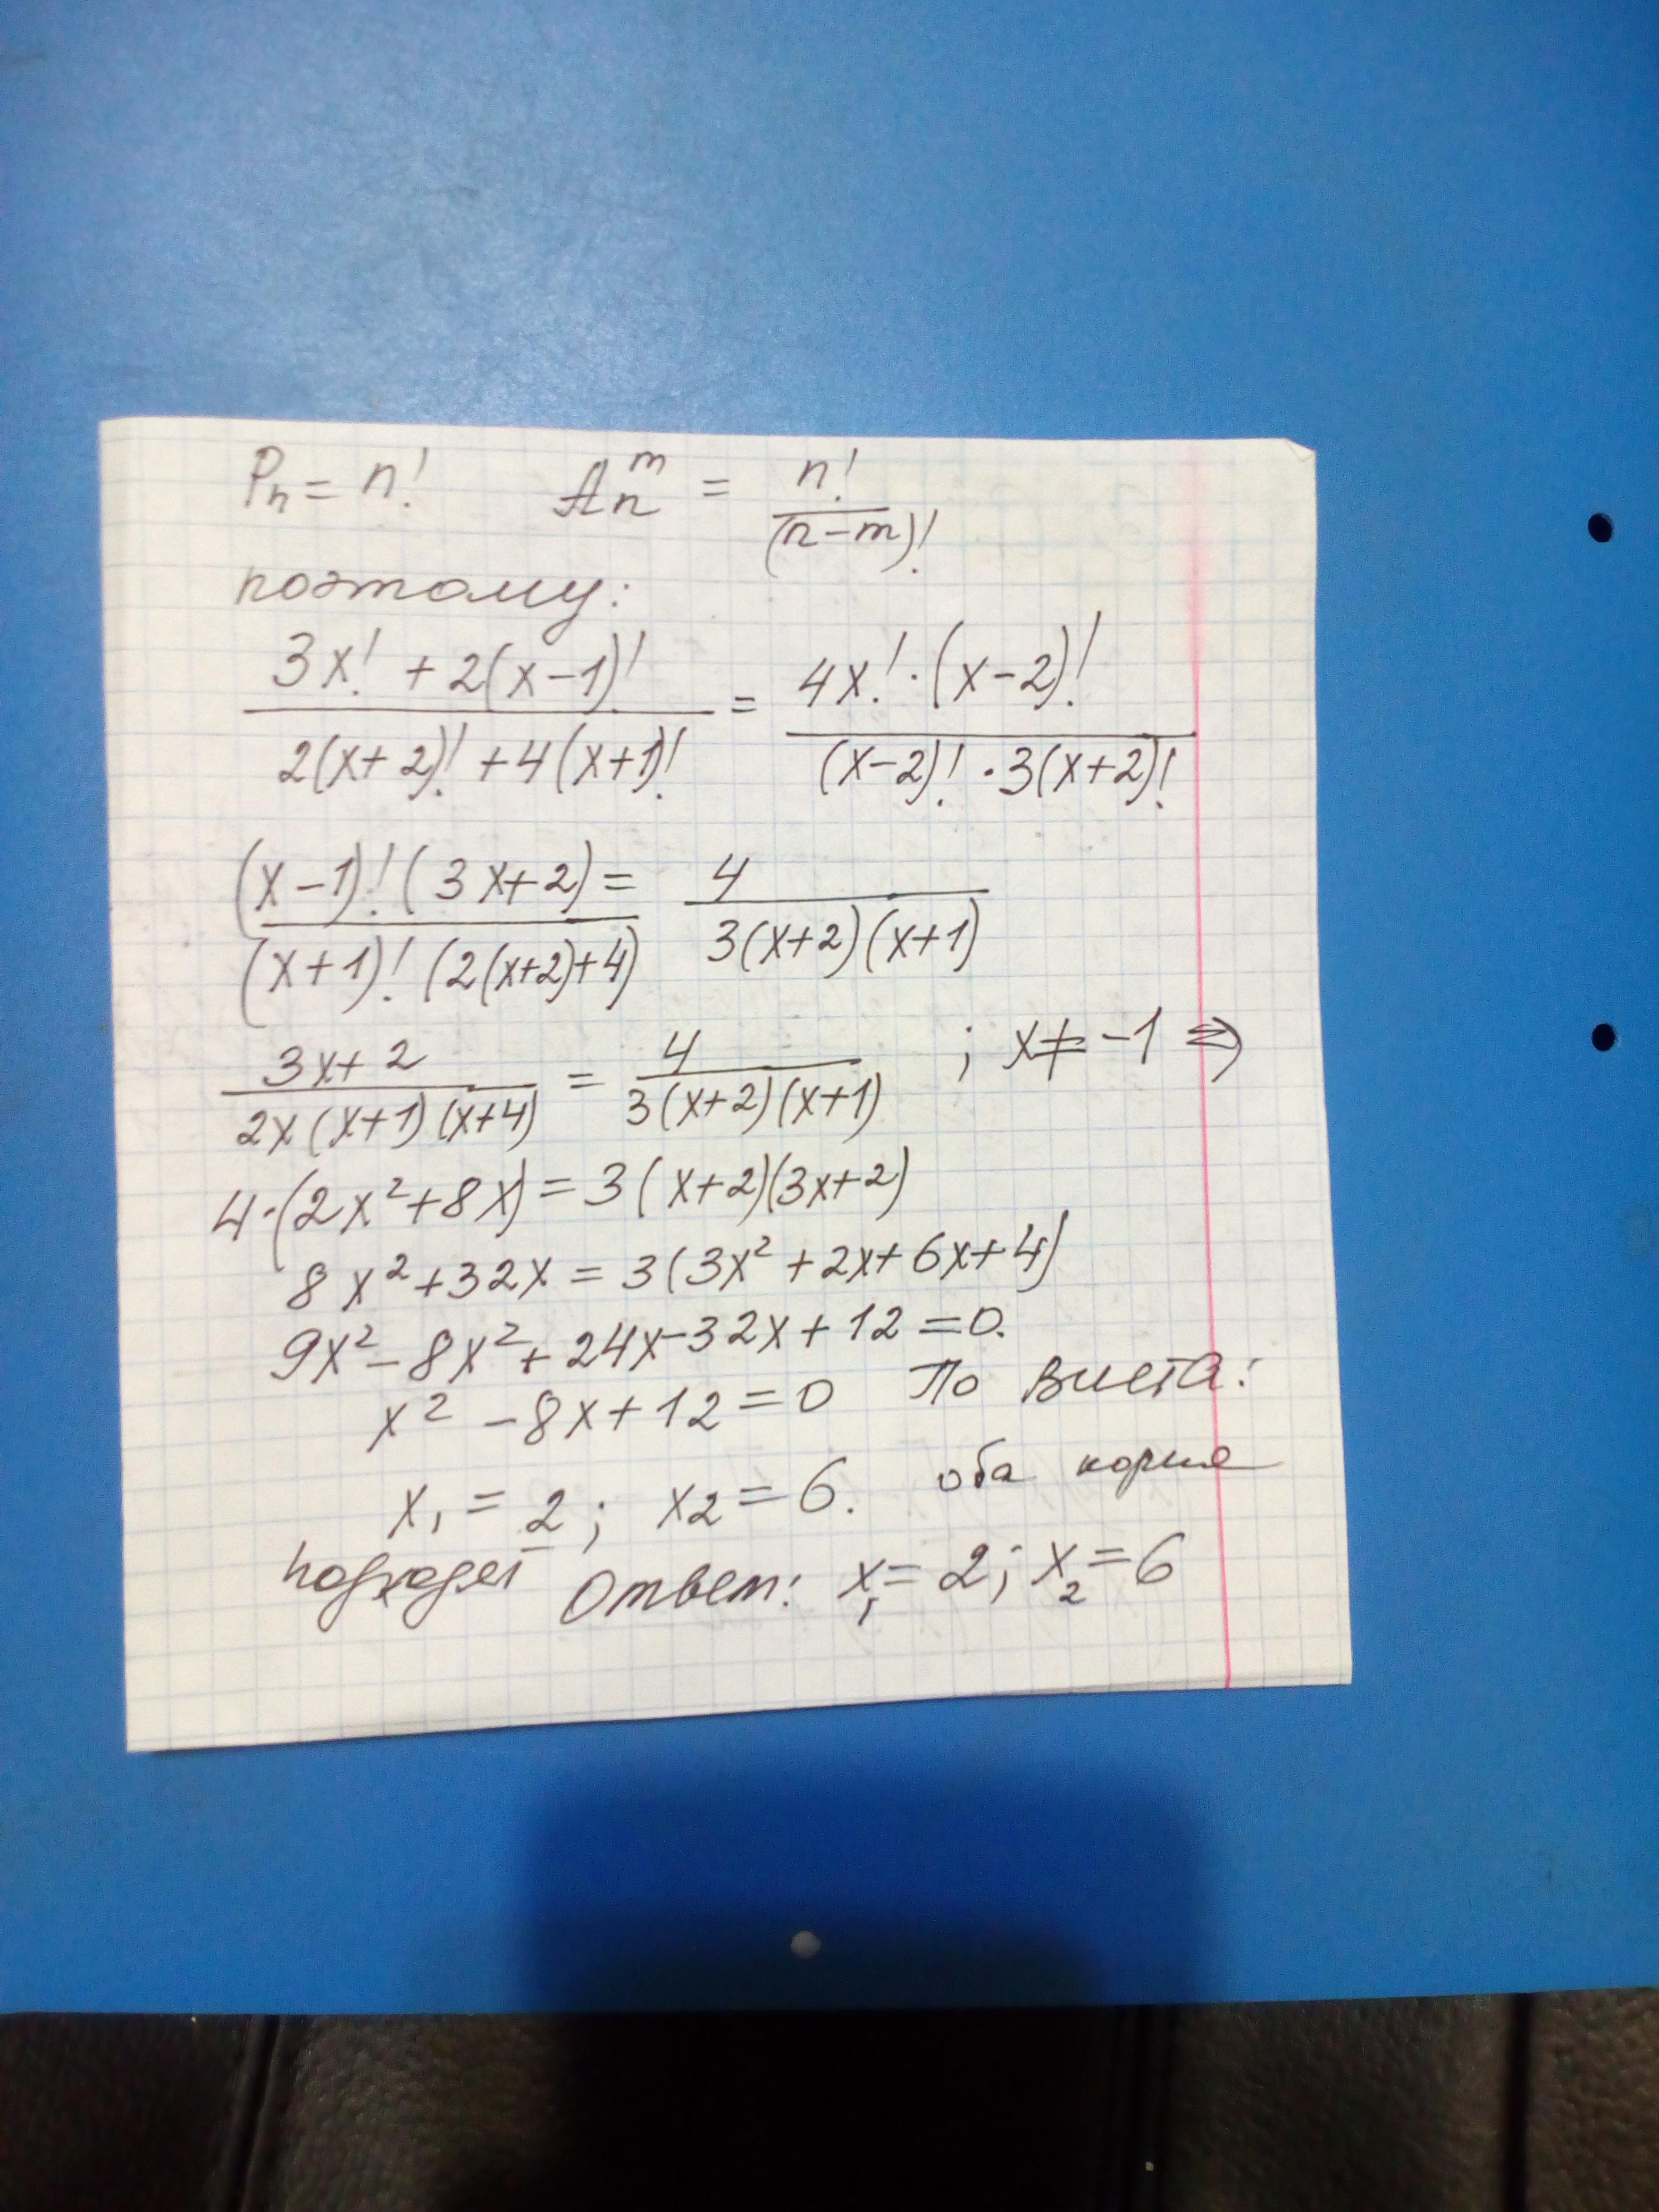 Pₙ = n! Aₙᵐ = n!/(n-m)!
поэтому:
(3x! + 2(x-1)!)/(2(x+2)! + 4(x+1)!) = (4x! · (x-2)!)/((x-2)! · 3(x+2)!)
((x-1)! (3x+2))/((x+1)! (2(x+2)+4)) = 4/(3(x+2)(x+1))
(3x+2)/(2x(x+1)(x+4)) = 4/(3(x+2)(x+1)) ; x≠-1 ⇒
4·(2x²+8x) = 3(x+2)(3x+2)
8x²+32x = 3(3x²+2x+6x+4)
9x²-8x²+24x-32x+12=0.
x²-8x+12=0 По Виета:
x₁ = 2; x₂ = 6. оба корня
подходят Ответ: x₁=2; x₂=6